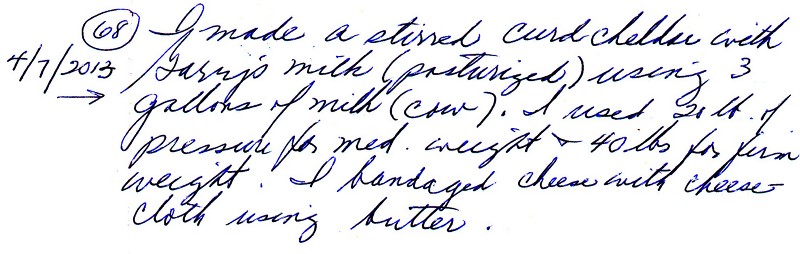 68 I made a stirred curd cheddar with
4/7/2013 Garry's milk (pasturized) using 3
→ gallons of milk (cow). I used 20 lb. of
pressure for med. weight & 40 lbs for firm
weight. I bandaged cheese with cheese-
cloth using butter.